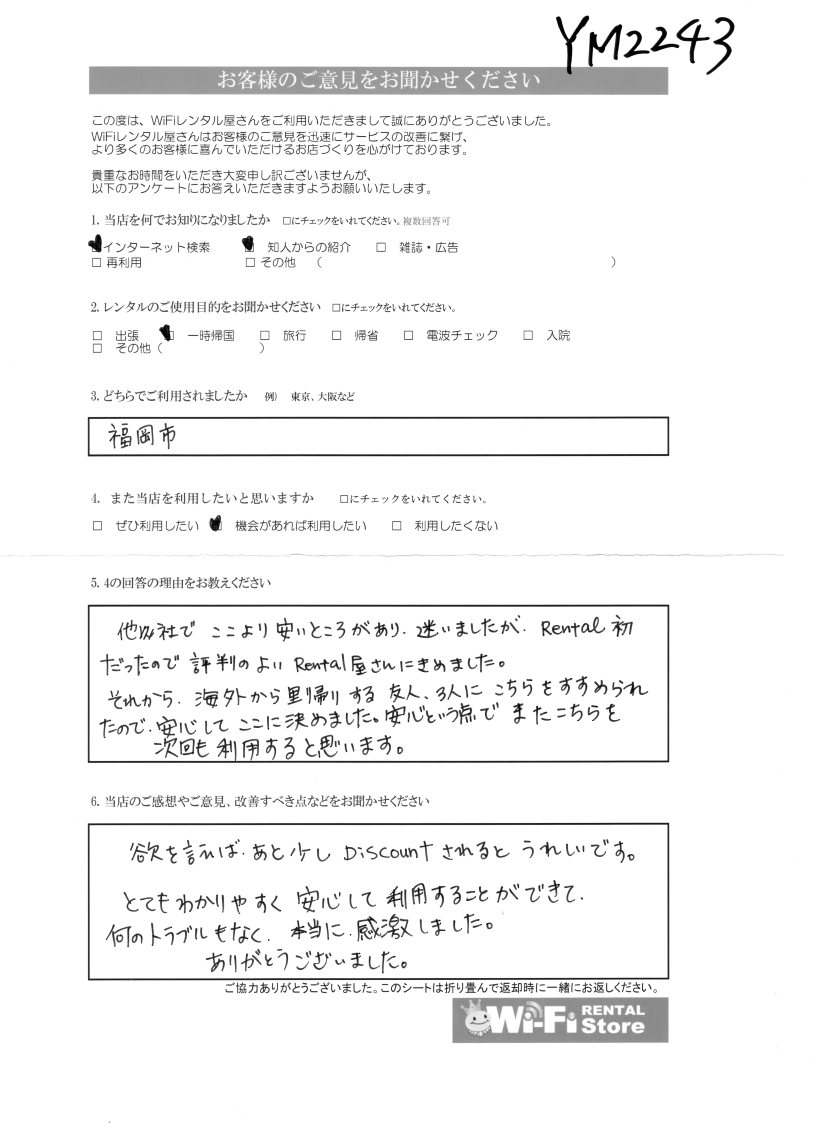 YM2243
お客様のご意見をお聞かせください
この度は、WiFiレンタル屋さんをご利用いただきまして誠にありがとうございました。
WiFiレンタル屋さんはお客様のご意見を迅速にサービスの改善に繋げ、
より多くのお客様に喜んでいただけるお店づくりを心がけております。
貴重なお時間をいただき大変申し訳ございませんが、
以下のアンケートにお答えいただきますようお願いいたします。
1. 当店を何でお知りになりましたか □にチェックをいれてください。複数回答可
インターネット検索 知人からの紹介 □ 雑誌・広告
□ 再利用 □ その他 ( )
2. レンタルのご使用目的をお聞かせください □にチェックをいれてください。
□ 出張 一時帰国 □ 旅行 □ 帰省 □ 電波チェック □ 入院
□ その他 ( )
3. どちらでご利用されましたか 例) 東京、大阪など
福岡市
4. また当店を利用したいと思いますか □にチェックをいれてください。
□ ぜひ利用したい 機会があれば利用したい □ 利用したくない
5. 4の回答の理由をお教えください
他社で ここより安いところがあり、迷いましたが、Rental初
だったので 評判のよい Rental屋さんにきめました。
それから、海外から里帰りする友人、3人に こちらをすすめられ
たので、安心して ここに決めました。安心という点で またこちらを
次回も利用すると思います。
6. 当店のご感想やご意見、改善すべき点などをお聞かせください
欲を言えば、あと少し Discount されると うれしいです。
とてもわかりやすく 安心して 利用することができて、
何のトラブルもなく、本当に、感激しました。
ありがとうございました。
ご協力ありがとうございました。このシートは折り畳んで返却時に一緒にお返しください。
Wi-Fi RENTAL Store